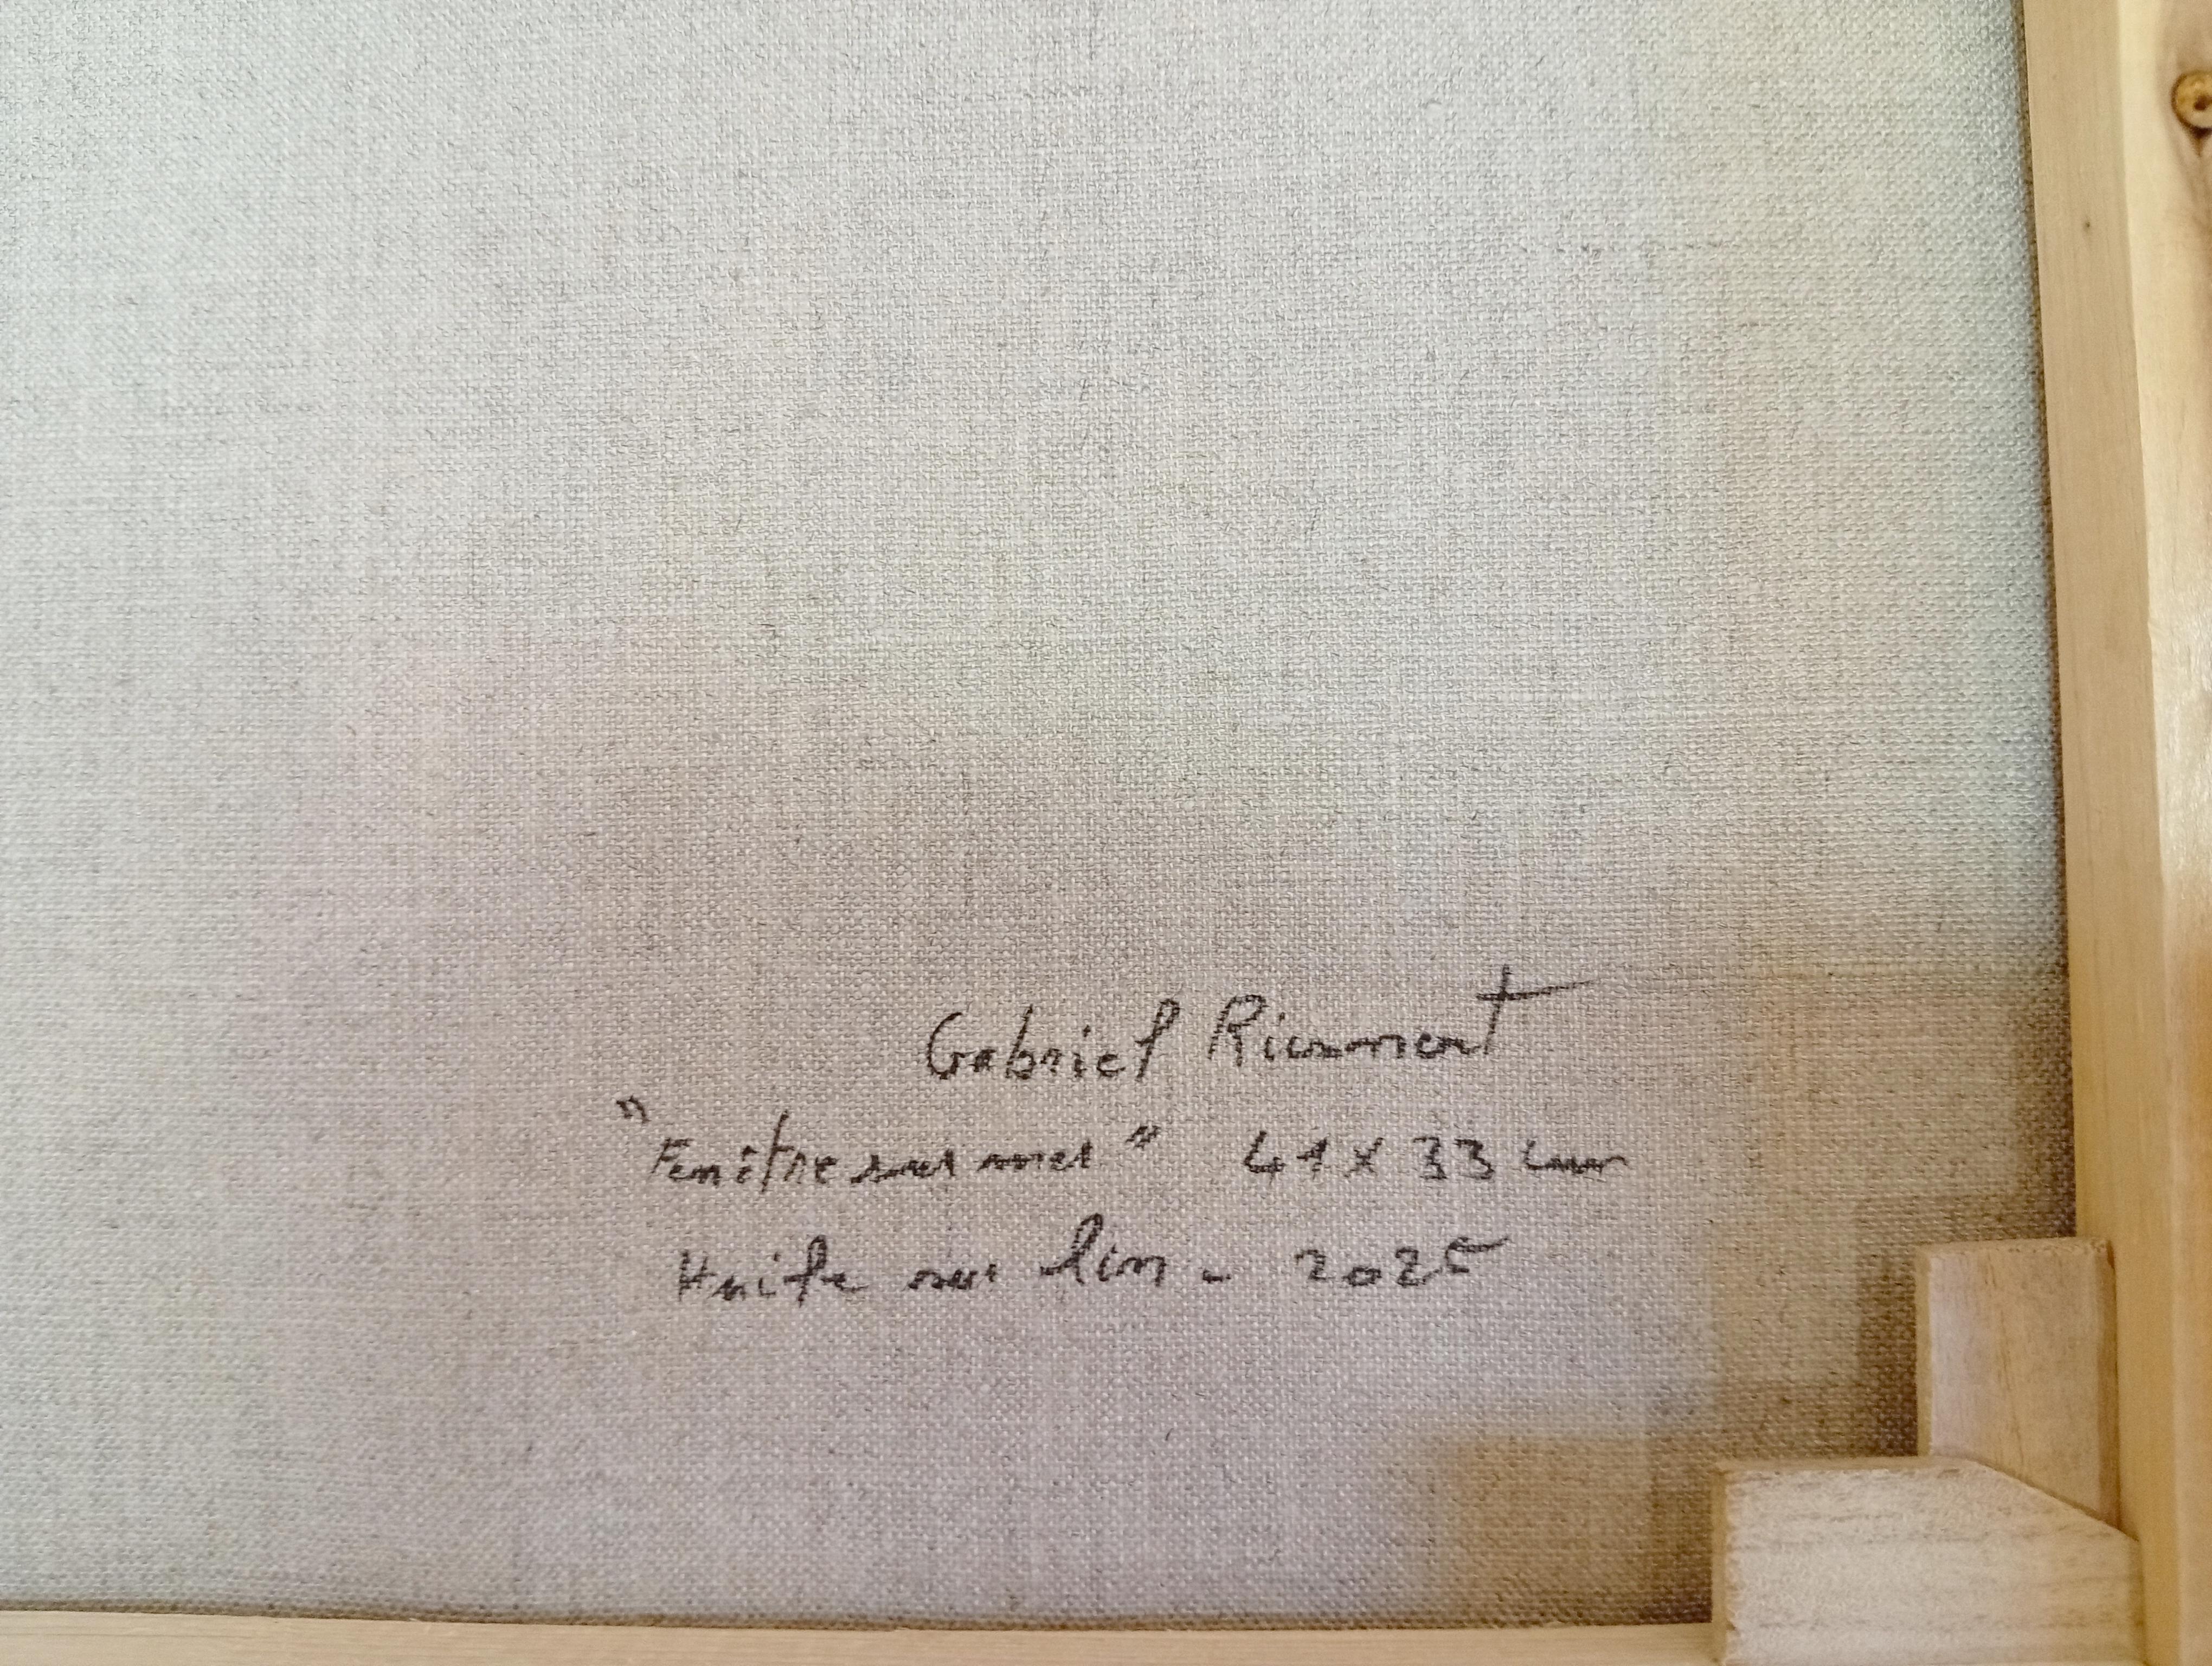 Gabriel Riermont
"Fenêtre sur mer" 41 x 33 cm
Huile sur lin - 2025